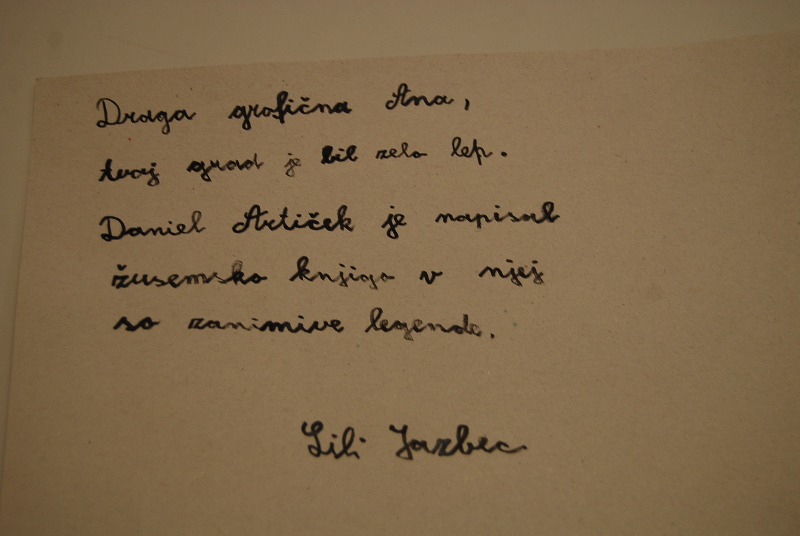 Draga grofična Ana,
tvoj grad je bil zelo lep.
Daniel Artiček je napisal
žusemsko knjigo v njej
so zanimive legende.
Lili Jazbec